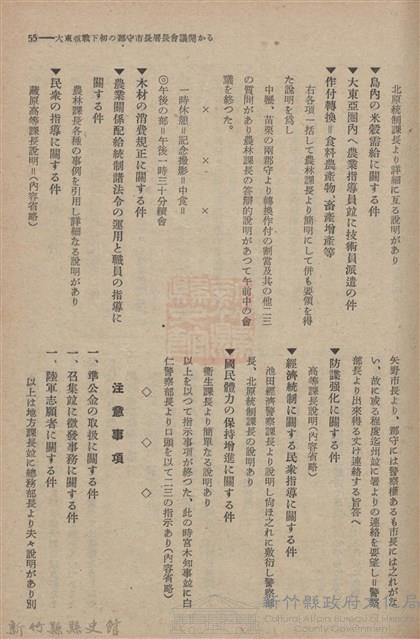 55——大東亞戰下初の郡守市長署長會議開かる
北原統制課長より詳細に亙る說明があり
▼島內の米穀需給に關する件
▼大東亞圈內へ農業指導員並に技術員派遣の件
▼作付轉換＝食料農產物、畜產增產等
右各項一括して農林課長より簡明にして併も要領を得
た說明を爲し
中壢、苗栗の兩郡守より轉換作付の割當及其の他二三
の質問があり農林課長の答辯的說明があつて午前中の會
議を終つた。
× × ×
一時休憩＝記念撮影＝中食＝
◎午後の部＝午後一時三十分續會
▼木材の消費規正に關する件
▼農業關係配給統制諸法令の運用と職員の指導に
關する件
農林課長各種の事例を引用し詳細なる說明があり
▼民衆の指導に關する件
藏原高等課長說明＝(內容省略)
矢野市長より、郡守には警察權あるも市長には之れがな
い、故に或る程度迄州並に署よりの連絡を要望し＝警察
部長より出來得る丈け連絡する旨答へ
▼防諜强化に關する件
高等課長說明(內容省略)
▼經濟統制に關する民衆指導に關する件
池田經濟警察課長より說明し尙ほ之れに敷衍し警察部
長、北原統制課長の說明あり
▼國民體力の保持增進に關する件
衞生課長より簡單なる說明あり
以上を以つて指示事項が終つた、此の時宮木知事並に白
仁警察部長より口頭を以て二三の指示あり(內容省略)
◇ ◇ ◇
注意事項
一、準公金の取扱に關する件
一、召集並に徵發事務に關する件
一、陸軍志願者に關する件
以上は地方課長並に總務部長より夫々說明があり別
新竹縣政府文化局
Cultural Affairs Bureau of Hsinchu
County Government
新竹縣縣史館